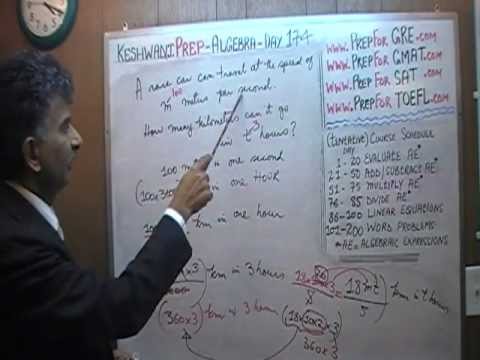 KESHWANI PREP-ALGEBRA-DAY 174
A race car can travel at the speed of
100
m meters per second.
How many kilometers can it go
in t hours?
3
100 in one second
(100x3 in one HOUR
km in one hour
x3) km in 3 hours
(360x3) km in 3 hours
18x 20 x3
5
= (18mt) km in t hours
5
(18x20x3)
360x3
WWW.PREPFOR GRE.COM
WWW.PREPFOR GMAT.COM
WWW.PREPFOR SAT.COM
WWW.PREPFOR TOEFL.COM
(TENTATIVE) COURSE SCHEDULE
DAY
1 - 20 EVALUATE AE*
21 - 50 ADD/SUBTRACT AE*
51 - 75 MULTIPLY AE*
76 - 85 DIVIDE AE*
86-100 LINEAR EQUATIONS
101-200 WORD PROBLEMS
*AE=ALGEBRAIC EXPRESSIONS